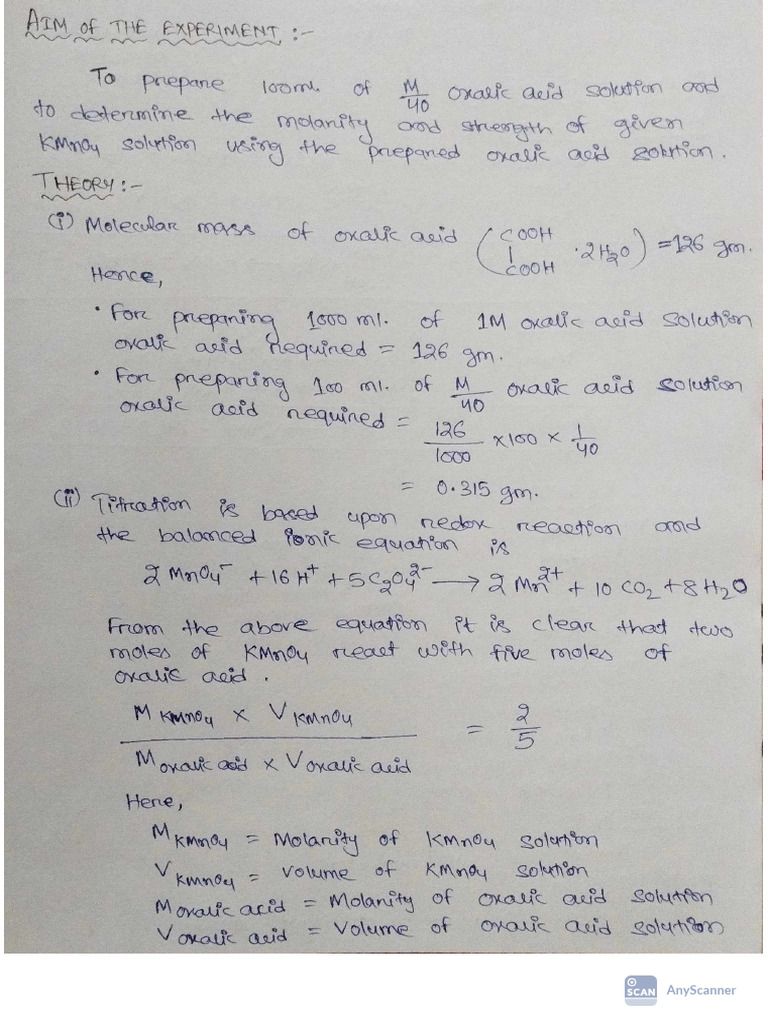 AIM OF THE EXPERIMENT :-
To prepare 100ml. of M/40 oxalic acid solution and
to determine the molarity and strength of given
KMnO₄ solution using the prepared oxalic acid solution.
THEORY :-
(i) Molecular mass of oxalic acid (COOH | COOH · 2H₂O) = 126 gm.
Hence,
• For preparing 1000 ml. of 1M oxalic acid solution
oxalic acid required = 126 gm.
• For preparing 100 ml. of M/40 oxalic acid solution
oxalic acid required = 126/1000 × 100 × 1/40
= 0.315 gm.
(ii) Titration is based upon redox reaction and
the balanced ionic equation is
2 MnO₄⁻ + 16 H⁺ + 5 C₂O₄²⁻ → 2 Mn²⁺ + 10 CO₂ + 8 H₂O
From the above equation it is clear that two
moles of KMnO₄ react with five moles of
oxalic acid.
M KMnO₄ × V KMnO₄ / M oxalic acid × V oxalic acid = 2/5
Here,
M KMnO₄ = Molarity of KMnO₄ solution
V KMnO₄ = Volume of KMnO₄ solution
M oxalic acid = Molarity of oxalic acid solution
V oxalic acid = Volume of oxalic acid solution
SCAN AnyScanner